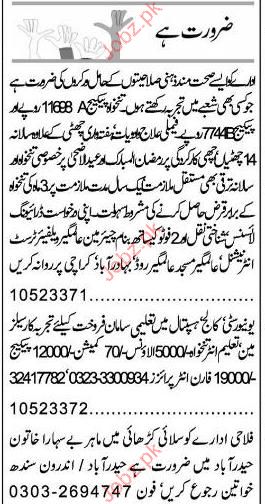 ضرورت ہے
ادارے کو ایسے صحت مند ذہنی صلاحیتوں کے حامل ورکروں کی ضرورت ہے
جو کسی بھی شعبے میں تجربہ رکھتے ہوں۔ تنخواہ پیکیج A 11688 روپے اور
پیکیج B 7744 روپے فیملی علاج و ادویات و ہفتہ واری چھٹی کے علاوہ سالانہ
14 چھٹیاں اچھی کارکردگی پر رمضان المبارک اور عید الاضحیٰ پر خصوصی تنخواہ اور
سالانہ ترقی بھی مستقل ملازمت ایک سال مدت ملازمت پر 3 ماہ کی تنخواہ
کے برابر قرض حاصل کرنے کی مشروط سہولت، اپنی درخواست ڈرائیونگ
لائسنس شناختی نقل اور 2 فوٹو کے ساتھ بنام چیئرمین عالمگیر ویلفیئر ٹرسٹ
انٹرنیشنل، عالمگیر مسجد عالمگیر روڈ، بہادر آباد، کراچی پر روانہ کریں
10523371
یونیورٹی، کالج، ہسپتال میں تعلیمی سامان فروخت کیلئے تجربہ کار سیلز
مین تعلیم انٹر تنخواہ -/5000 الاؤنس -/70 کمیشن -/12000 پیکیج
-/19000 فارن انٹرپرائزز 0323-3300934، 32417782
10523372
فلاحی ادارے کو سلائی کڑھائی میں ماہر بے سہارا خاتون
حیدر آباد میں ضرورت ہے حیدر آباد / اندرون سندھ
خواتین رجوع کریں، فون 0303-2694747
Jobz.pk
Jobz.pk